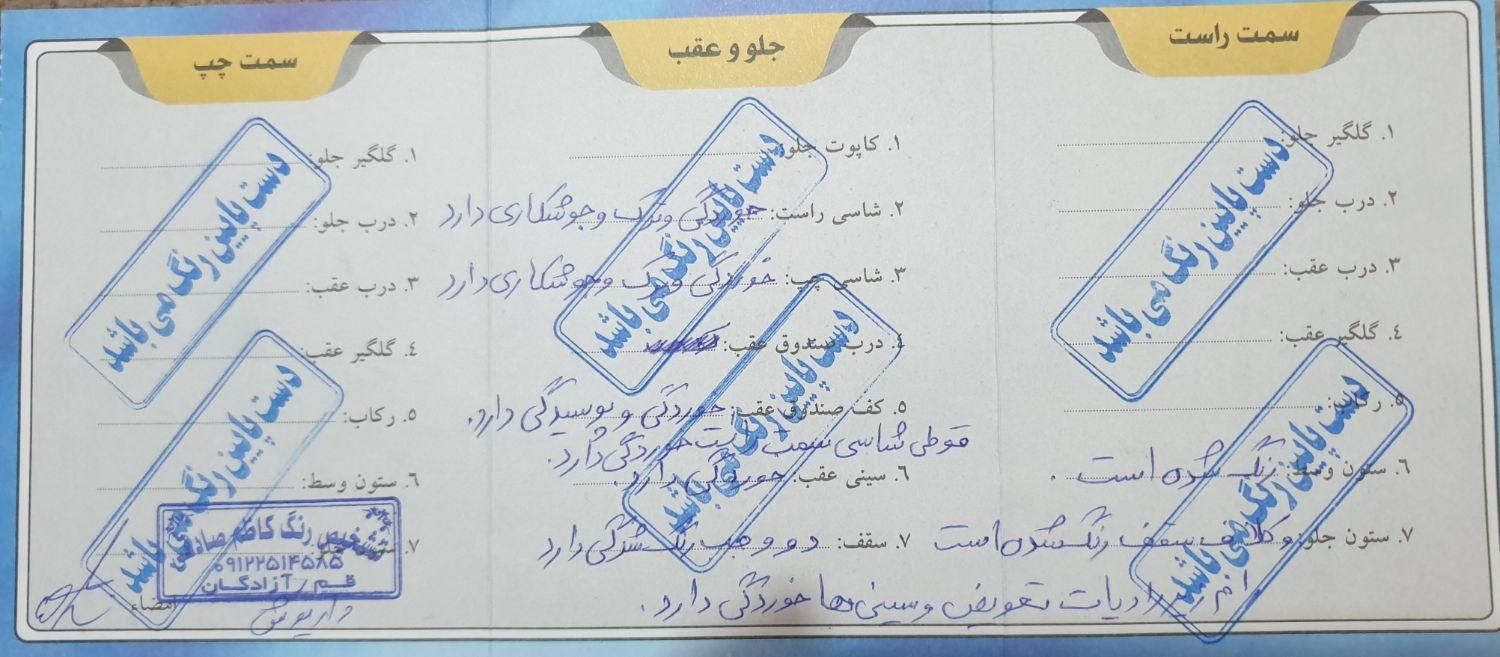 سمت راست
۱. گلگیر جلو:
۲. درب جلو:
۳. درب عقب:
۴. گلگیر عقب:
۵. رکاب:
۶. ستون وسط: رنگ شده است.
۷. ستون جلو: و سقف رنگ شده است
دست پایین رنگ می باشد
دست پایین رنگ می باشد
جلو و عقب
۱. کاپوت جلو:
۲. شاسی راست: خوردگی و ترک و جوشکاری دارد
۳. شاسی چپ: خوردگی و ترک و جوشکاری دارد
۴. درب صندوق عقب:
۵. کف صندوق عقب: خوردگی و پوسیدگی دارد.
قوطی شاسی سمت راست خوردگی دارد.
۶. سینی عقب: خوردگی دارد.
۷. سقف: دو وجب رنگ شدگی دارد
تعویض و سینی ها خوردگی دارد.
دست پایین رنگ می باشد
دست پایین رنگ می باشد
سمت چپ
۱. گلگیر جلو:
۲. درب جلو:
۳. درب عقب:
۴. گلگیر عقب:
۵. رکاب:
۶. ستون وسط:
۷. ستون جلو:
دست پایین رنگ می باشد
دست پایین رنگ می باشد
تشخیص رنگ کاظم صادقی
۰۹۱۲۲۵۱۴۵۸۵
قم - آزادگان
امضاء